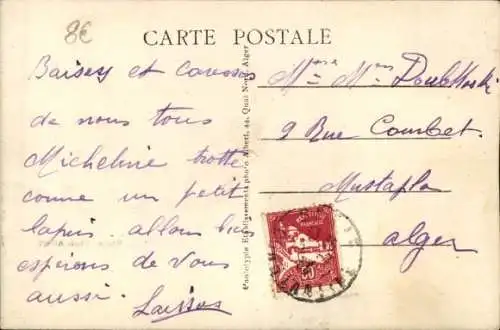 8€
CARTE POSTALE
Baisers et caresses
de nous tous
Micheline trotte
comme un petit
lapin. allons bien
espérons de vous
aussi.
Phototypie Etablissements photo Albert, 44, Quai Nord, Alger
9 Rue Courbet
Mustapha
Alger